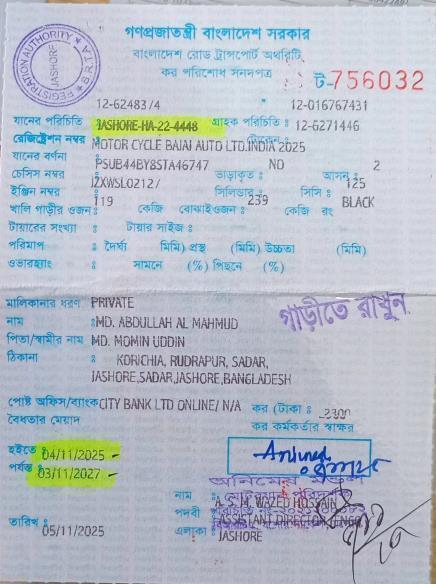 গণপ্রজাতন্ত্রী বাংলাদেশ সরকার
বাংলাদেশ রোড ট্রান্সপোর্ট অথরিটি
কর পরিশোধ সনদপত্র
REGISTRATION AUTHORITY JASHORE
ট-756032
12-62483/4 12-016767431
যানের পরিচিতি : JASHORE-HA-22-4448 গ্রাহক পরিচিতি : 12-6271446
রেজিষ্ট্রেশন নম্বর
যানের বর্ণনা MOTOR CYCLE BAJAJ AUTO LTD.INDIA 2025
চেসিস নম্বর PSUB44BY8STA46747 ভাড়াকৃত : NO আসন : 2
ইঞ্জিন নম্বর JZXWSL02127 সিলিন্ডার : সিসি : 125
খালি গাড়ীর ওজন : 119 কেজি বোঝাইওজন : 239 কেজি রং BLACK
টায়ারের সংখ্যা : টায়ার সাইজ :
পরিমাপ : দৈর্ঘ্য (মিমি) প্রস্থ (মিমি) উচ্চতা (মিমি)
ওভারহ্যাং : সামনে (%) পিছনে (%)
মালিকানার ধরণ PRIVATE
গাড়ীতে রাখুন
নাম : MD. ABDULLAH AL MAHMUD
পিতা/স্বামীর নাম MD. MOMIN UDDIN
ঠিকানা : KORICHIA, RUDRAPUR, SADAR,
JASHORE,SADAR,JASHORE,BANGLADESH
পোষ্ট অফিস/ব্যাংক CITY BANK LTD ONLINE/ N/A কর (টাকা : 2300
বৈধতার মেয়াদ কর কর্মকর্তার স্বাক্ষর
হইতে : 04/11/2025
পর্যন্ত : 03/11/2027
নাম : A. S. M. WAZED HOSSAIN
পদবী : ASSISTANT DIRECTOR
তারিখ : 05/11/2025 এলাকা : JASHORE